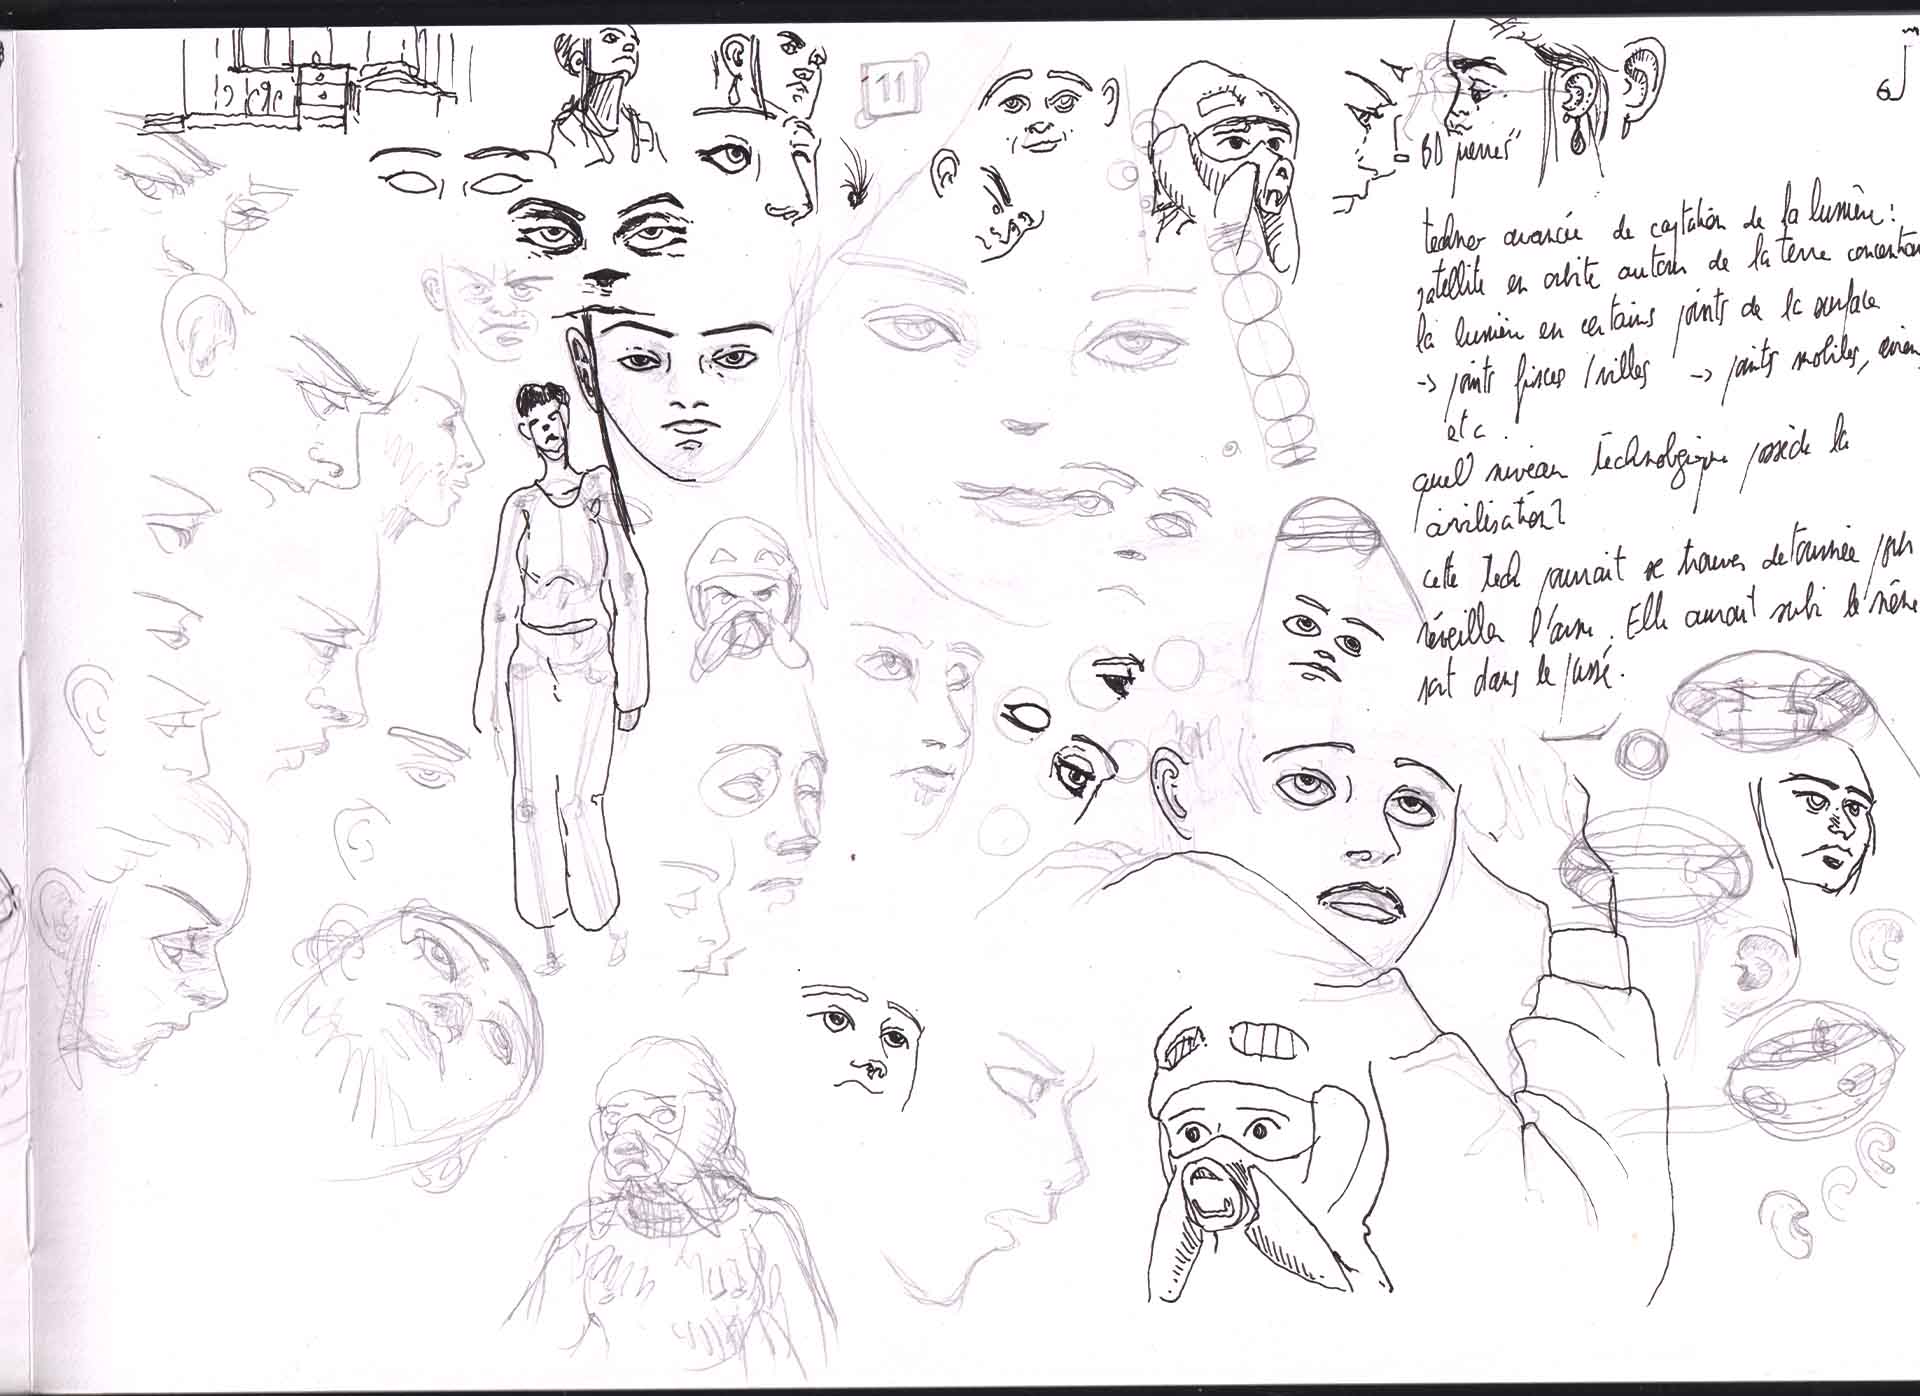 11
BD pierres"
techno avancée de captation de la lumière :
satellite en orbite autour de la terre concentran
la lumière en certains points de la surface
-> points fixes / villes -> points mobiles, avion,
etc.
quel niveau technologique possède la
civilisation ?
cette tech pourrait se trouver detournée pour
réveiller l'arme. Elle aurait subi le même
sort dans le passé.